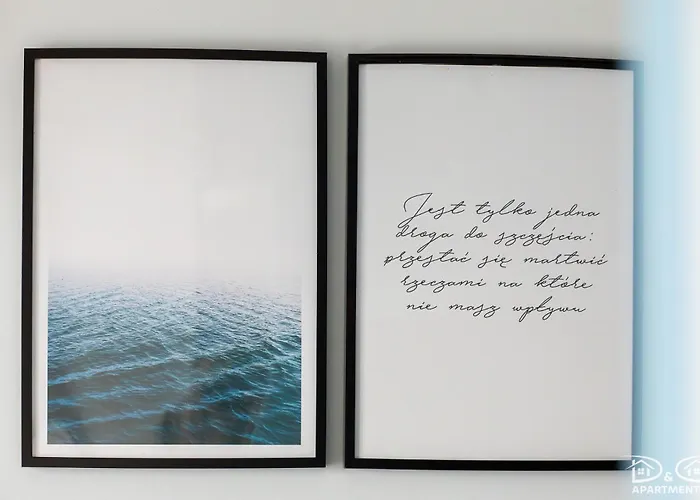 Jest tylko jedna
droga do szczęścia:
przestać się martwić
rzeczami na które
nie masz wpływu
D & G
APARTMENT